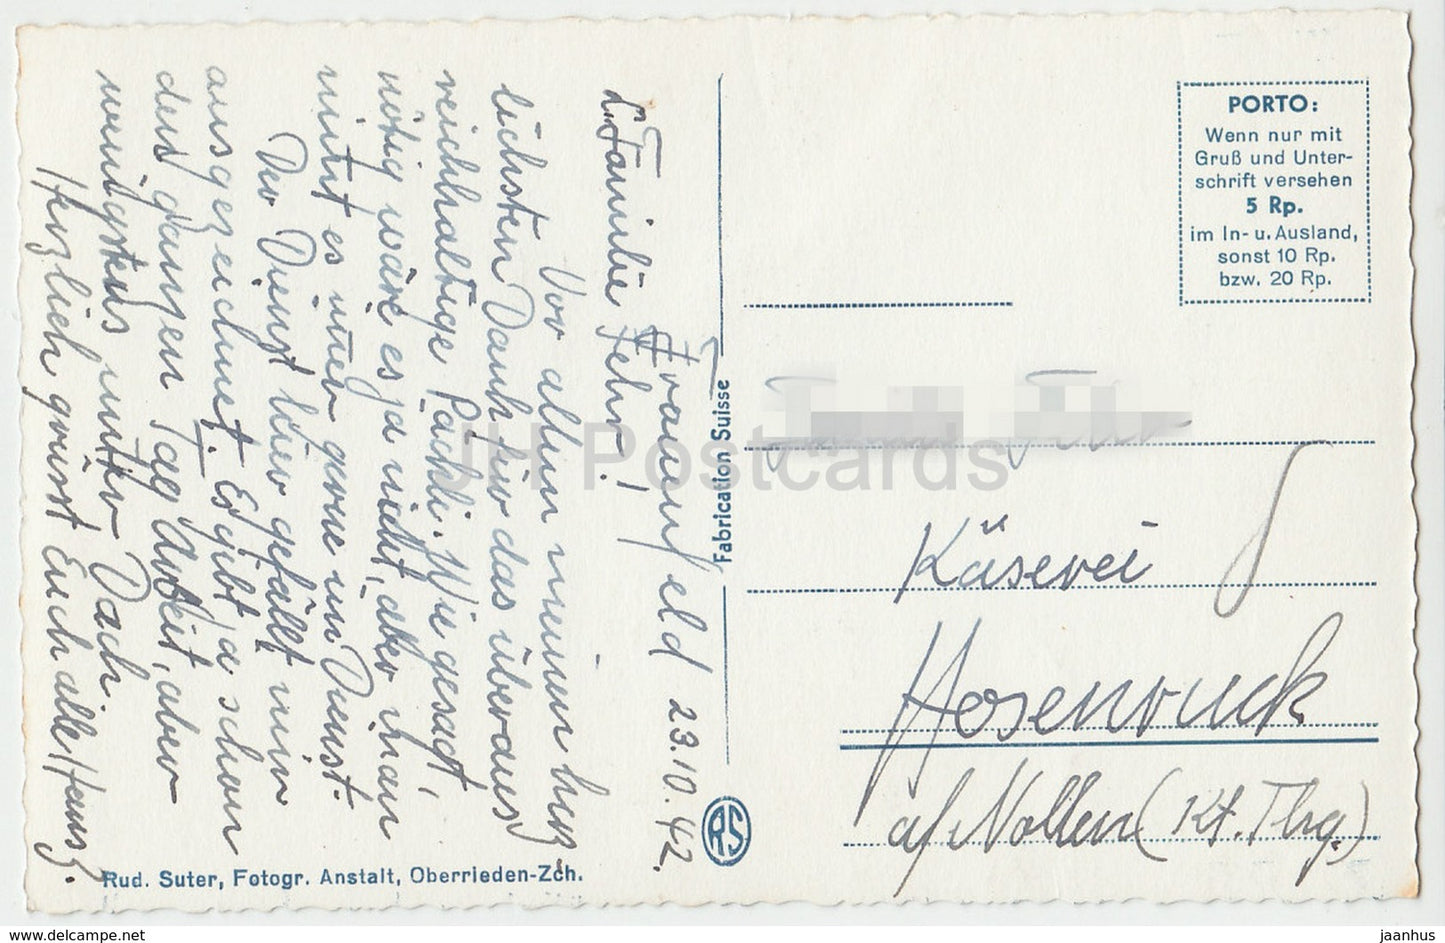 Frauenfeld 23.10.42.
L. Familie Fehr!
Vor allem meinen herz
lichsten Dank für das überaus
reichhaltige Päckli. Wie gesagt,
nötig wäre es ja nicht, aber man
nimt es imer gerne im Dienst.
Der Dienst hier gefällt mir
ausgezeichnet. Es gibt ja schon
den ganzen Tag Arbeit, aber
wenigstens unter Dach.
Herzlich grüsst Euch alle Hans F.
Rud. Suter, Fotogr. Anstalt, Oberrieden-Zch.
Fabrication Suisse
RS
PORTO:
Wenn nur mit
Gruß und Unter-
schrift versehen
5 Rp.
im In- u. Ausland,
sonst 10 Rp.
bzw. 20 Rp.
Käserei
Hosenruck
a/Nollen (Kt. Thrg.)
JH Postcards
www.delcampe.net
jaanhus